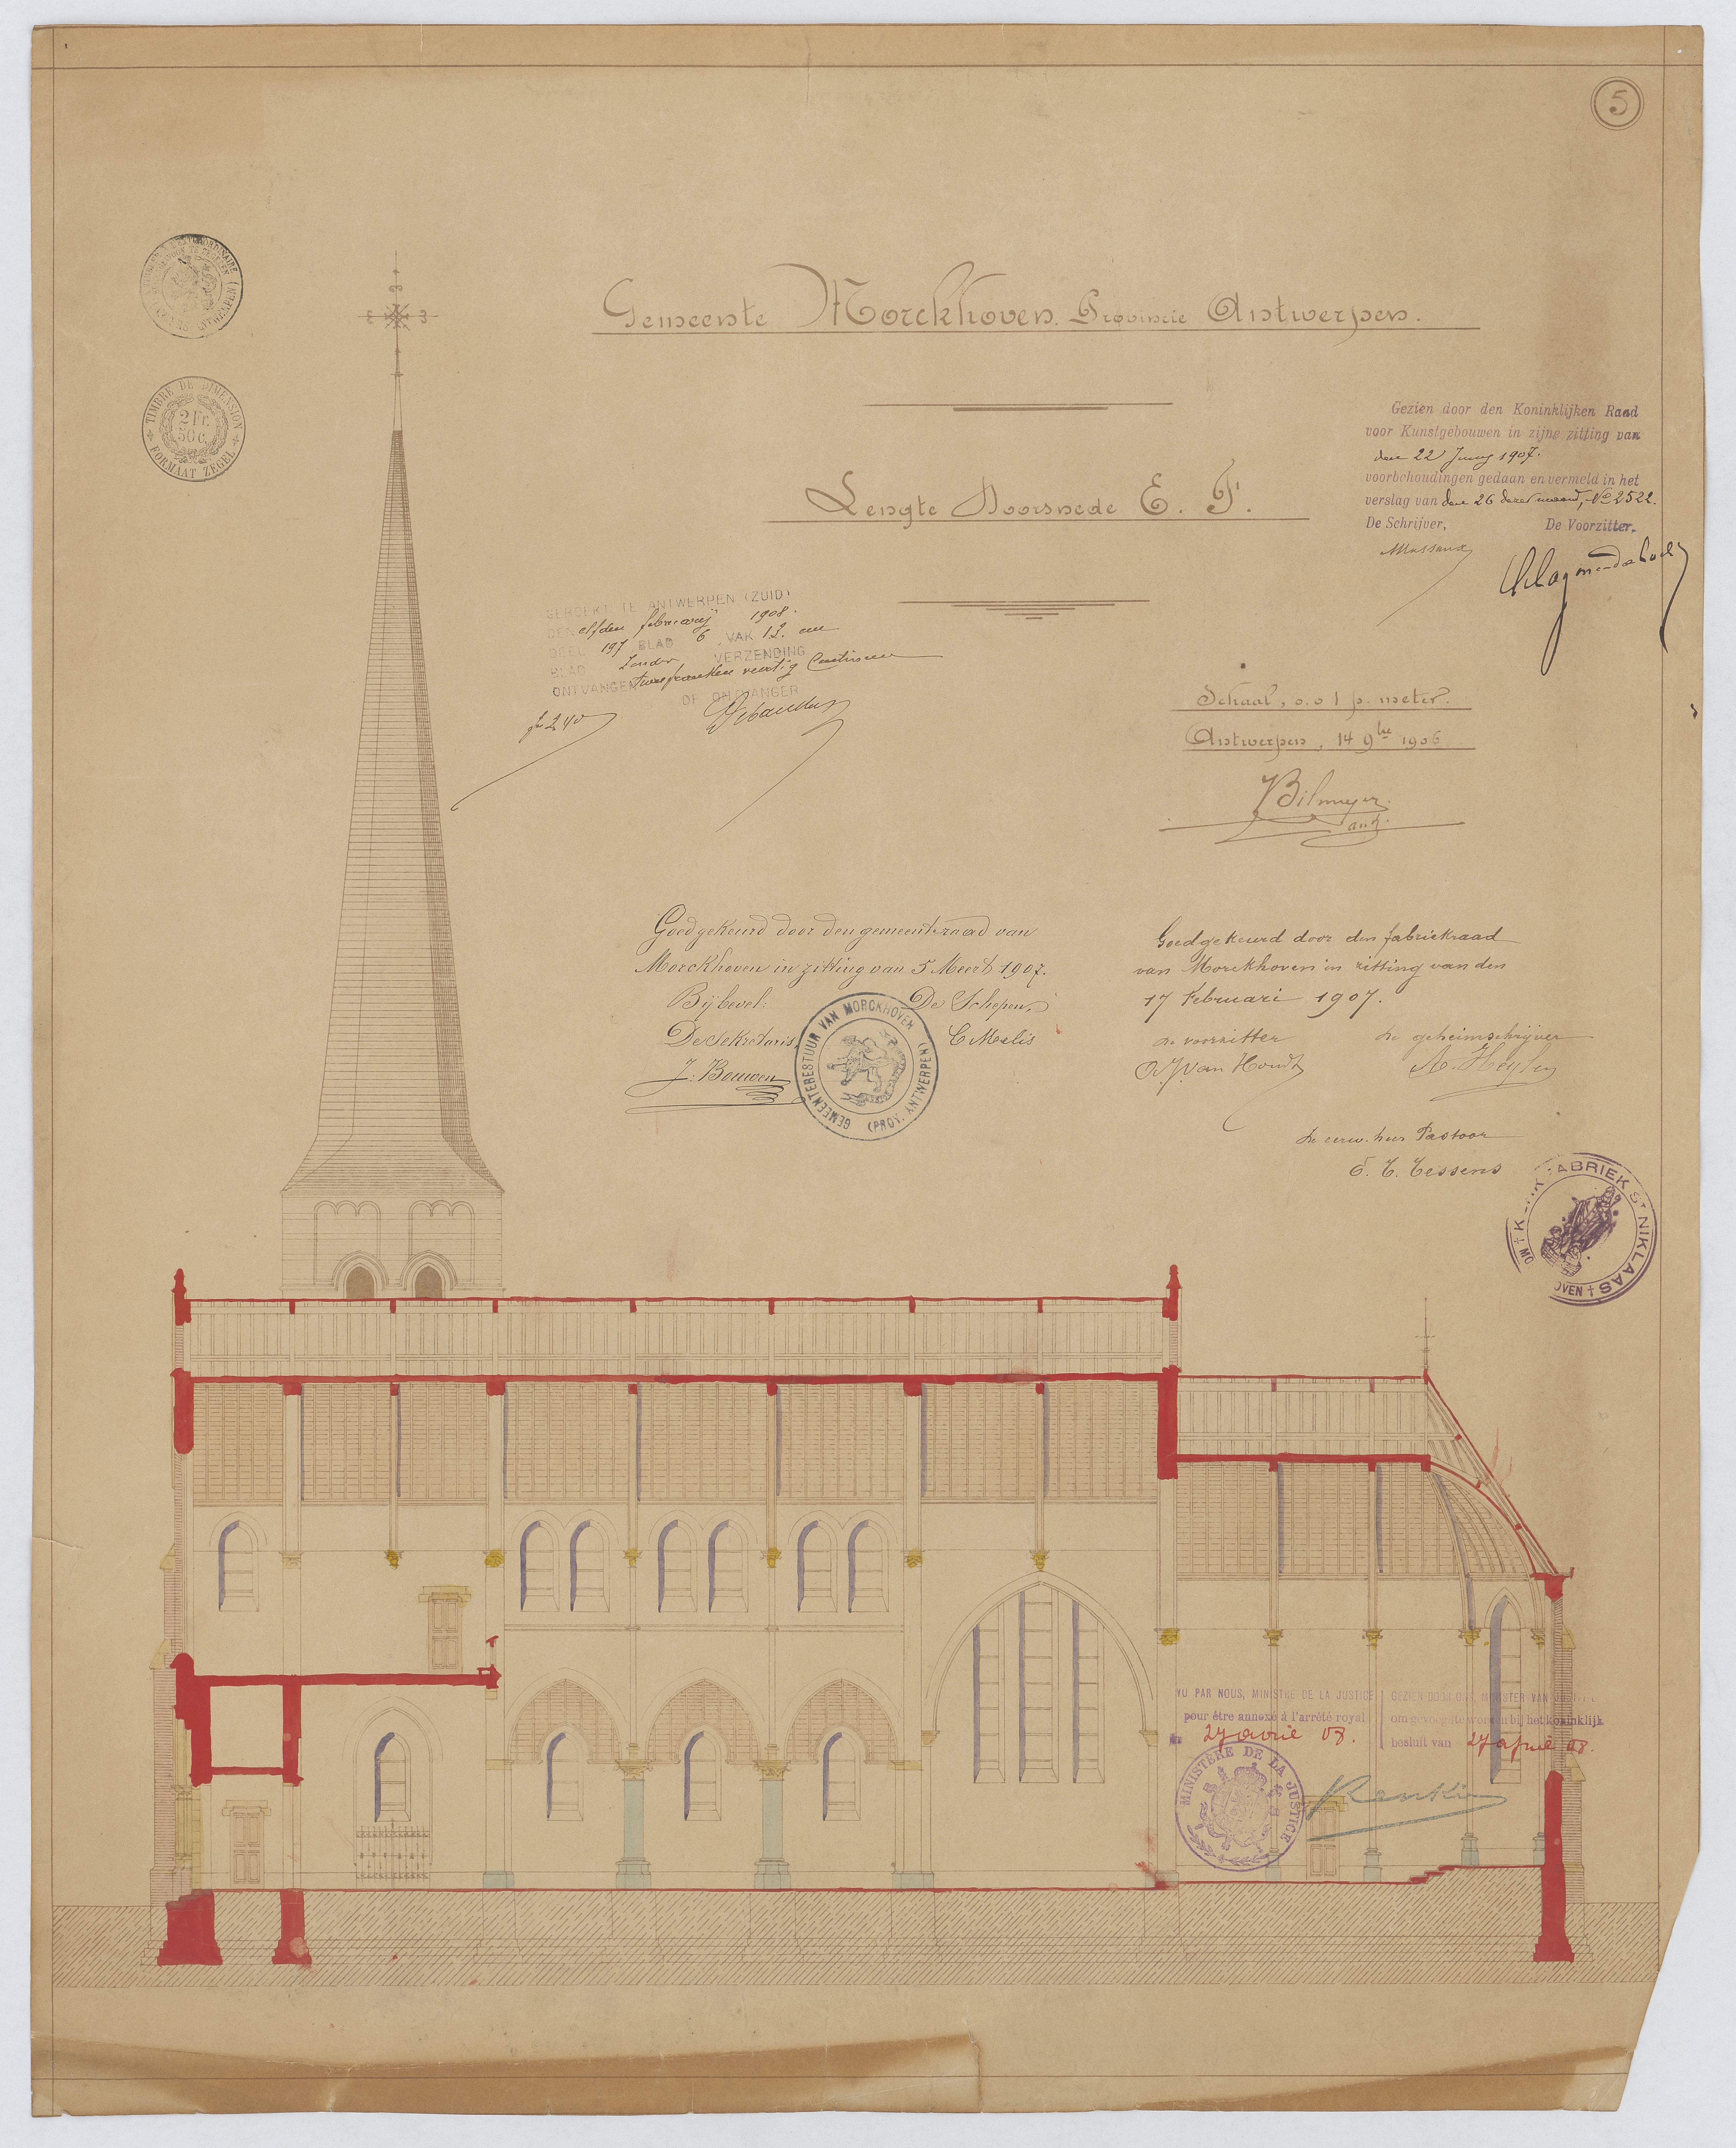 5
Gemeente Morckhoven. Provincie Antwerpen.
TIMBRE DE DIMENSION
2 Fr.
50 C.
FORMAAT ZEGEL
Gezien door den Koninklijken Raad
voor Kunstgebouwen in zijne zitting van
den 22 Juny 1907.
voorbehoudingen gedaan en vermeld in het
verslag van den 26 dezer maand, No 2522.
De Schrijver, De Voorzitter,
Massaux
Lengte Doorsnede E. F.
TE ANTWERPEN (ZUID)
DEN elfden februarij 1908.
DEEL 197 BLAD 6 VAK 12.
BLAD Zonder VERZENDING
ONTVANGEN twee franken veertig Centimen
DE ONTVANGER
fr 2.40
Schaal, 0.01 p. meter.
Antwerpen, 14 9bre 1906
Bilmeyer
arch.
Goedgekeurd door den gemeenteraad van
Morckhoven in zitting van 5 Meert 1907.
Bij bevel: De Schepen,
De Sekretaris, C Melis
J. Bouwen
GEMEENTEBESTUUR VAN MORCKHOVEN
(PROV. ANTWERPEN)
Goedgekeurd door den fabriekraad
van Morckhoven in zitting van den
17 Februari 1907.
de voorzitter de geheimschrijver
Van Houdt A. Heylen
de eerw. heer Pastoor
E. C. Cessens
FABRIEK ST NIKLAAS
VU PAR NOUS, MINISTRE DE LA JUSTICE
pour être annexé à l'arrêté royal
27 avril 08.
GEZIEN DOOR ONS, MINISTER VAN JUSTITIE
om gevoegd te worden bij het koninklijk
besluit van 27 april 08.
MINISTÈRE DE LA JUSTICE
Renkin